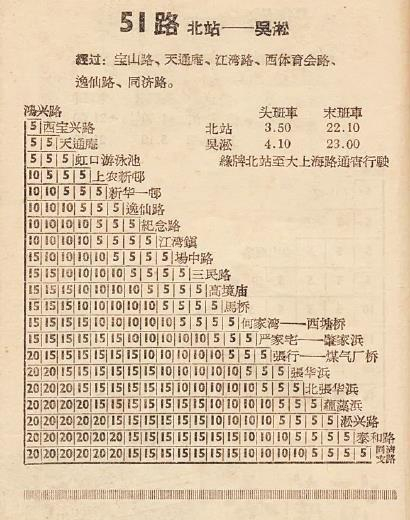 51路 北站——吳淞
經过：宝山路、天通庵、江湾路、西体育会路、
逸仙路、同济路。
头班車 末班車
北站 3.50 22.10
吳淞 4.10 23.00
綠牌北站至大上海路通宵行駛
鴻兴路
5 西宝兴路
5 5 天通庵
5 5 5 虹口游泳池
10 5 5 5 上农新邨
10 10 5 5 5 新华一邨
10 10 10 5 5 5 逸仙路
10 10 10 5 5 5 5 紀念路
10 10 10 10 5 5 5 5 江湾鎮
15 10 10 10 10 5 5 5 5 場中路
15 15 10 10 10 10 5 5 5 5 三民路
15 15 15 10 10 10 10 5 5 5 5 高境庙
15 15 15 10 10 10 10 10 5 5 5 5 馬桥
15 15 15 15 10 10 10 10 10 5 5 5 5 何家湾——西塘桥
15 15 15 15 15 10 10 10 10 10 10 5 5 5 严家宅——肇家浜
20 15 15 15 15 15 10 10 10 10 10 10 5 5 5 張行——煤气厂桥
20 20 20 15 15 15 15 15 15 10 10 10 10 5 5 5 張華浜
20 20 20 15 15 15 15 15 15 10 10 10 10 5 5 5 5 北張华浜
20 20 20 20 15 15 15 15 15 15 10 10 10 10 5 5 5 5 蕴藻浜
20 20 20 20 20 15 15 15 15 15 15 10 10 10 10 5 5 5 5 淞兴路
20 20 20 20 20 20 15 15 15 15 15 15 10 10 10 10 5 5 5 5 泰和路
20 20 20 20 20 20 15 15 15 15 15 15 15 10 10 10 10 5 5 5 5 同济支路